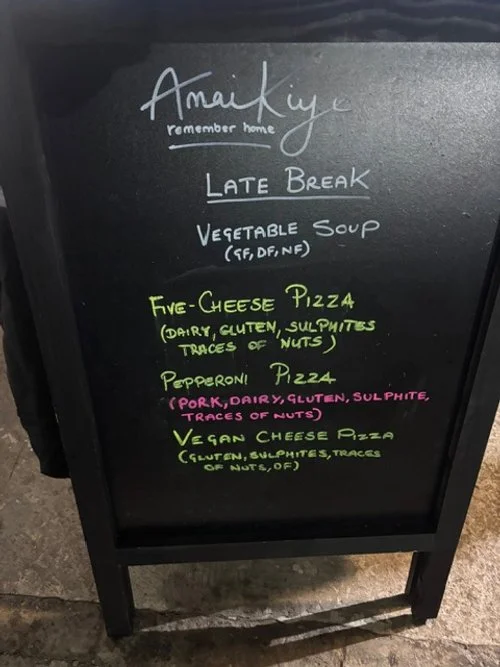 Amai Kiyo
remember home
LATE BREAK
VEGETABLE SOUP
(GF, DF, NF)
FIVE-CHEESE PIZZA
(DAIRY, GLUTEN, SULPHITES
TRACES OF NUTS)
PEPPERONI PIZZA
(PORK, DAIRY, GLUTEN, SULPHITE,
TRACES OF NUTS)
VEGAN CHEESE PIZZA
(GLUTEN, SULPHITES, TRACES
OF NUTS, DF)